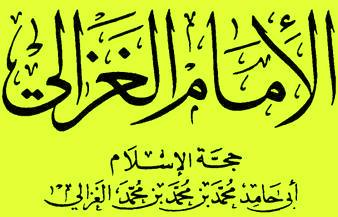 الإمام الغزالي
حجة الإسلام
أبي حامد محمد بن محمد بن محمد الغزالي